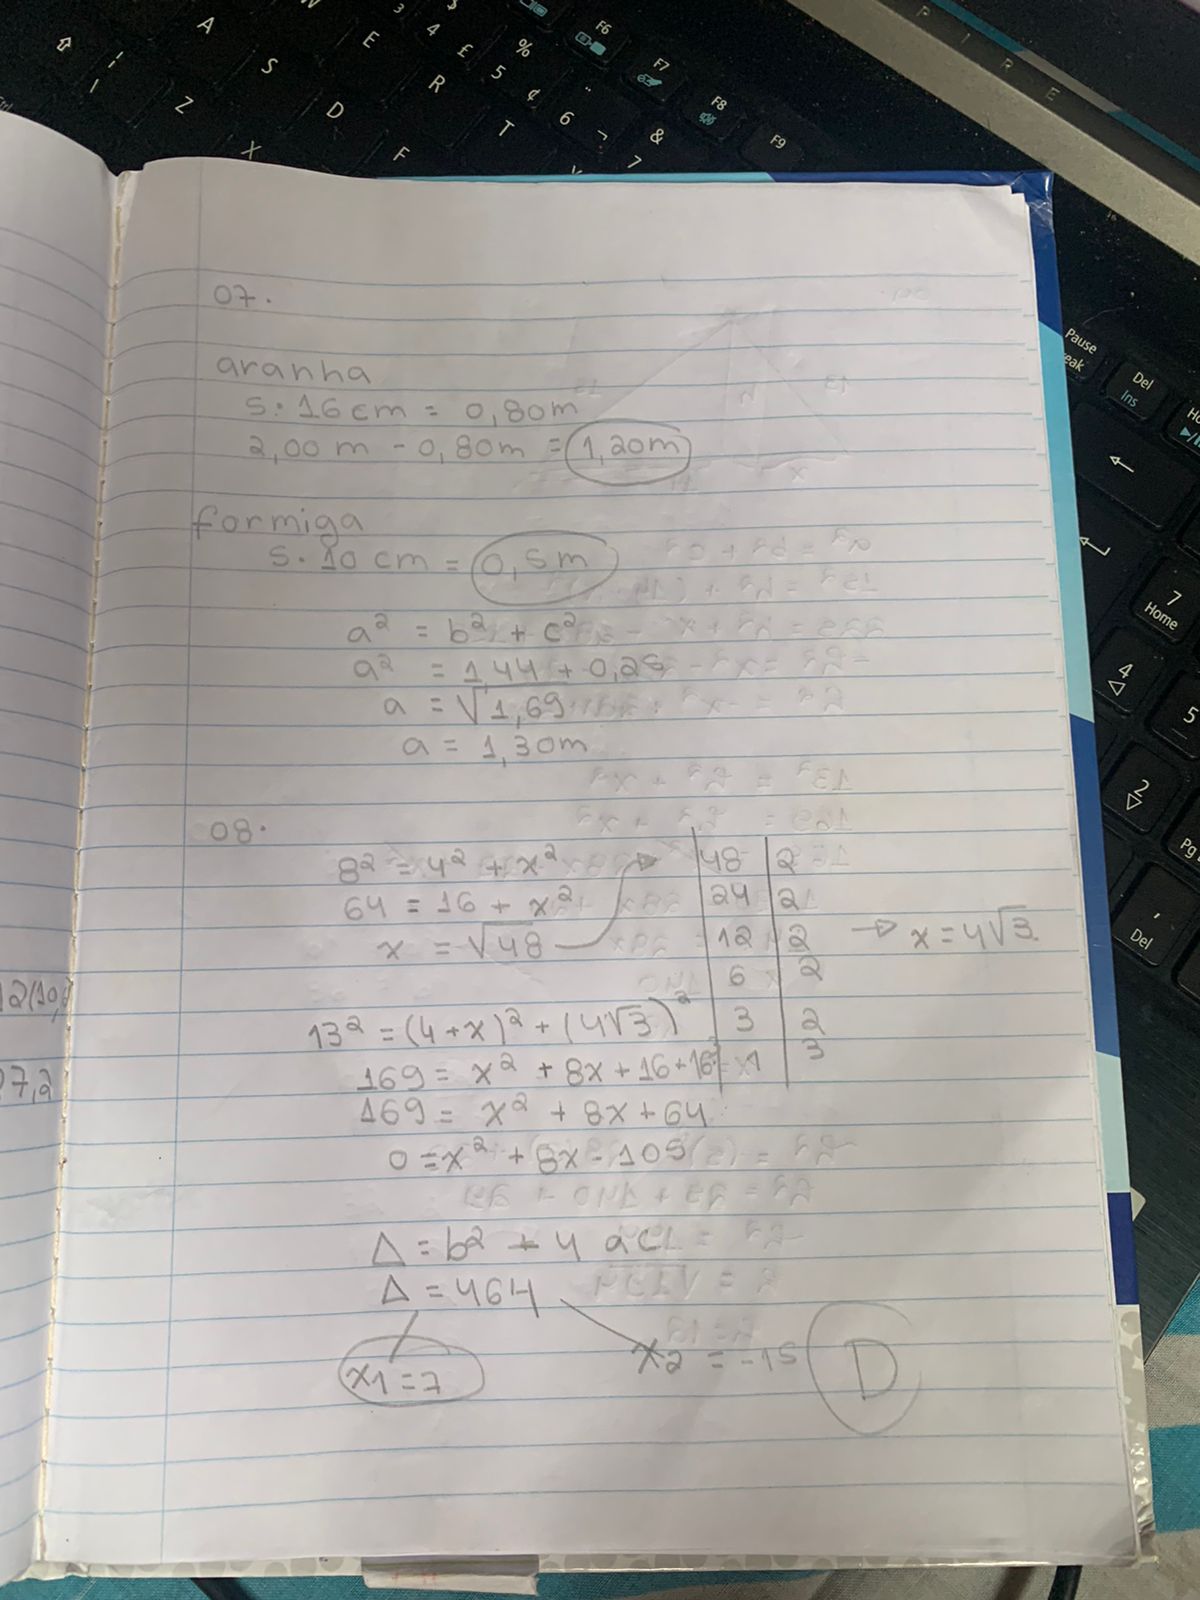 07.
aranha
5·16cm = 0,80m
2,00m - 0,80m = 1,20m
formiga
5·10 cm = 0,5m
a² = b² + c²
a² = 1,44 + 0,25
a = √1,69
a = 1,30m
08.
8² = 4² + x²
64 = 16 + x²
x = √48
48 | 2
24 | 2
12 | 2
6 | 2
3 | 2
1 | 3
→ x = 4√3
13² = (4+x)² + (4√3)²
169 = x² + 8x + 16 + 16
169 = x² + 8x + 64
0 = x² + 8x - 105
Δ = b² + 4 ac
Δ = 464
x1 = 7
x2 = -15
D
12(10,
7,2
A
S
D
F
Z
X
E
R
T
3
4
£
%
5
¢
6
¬
&
7
F6
F7
F8
F9
P
I
R
E
Pause
eak
Del
Ins
7
Home
4
5
2
Pg
Del